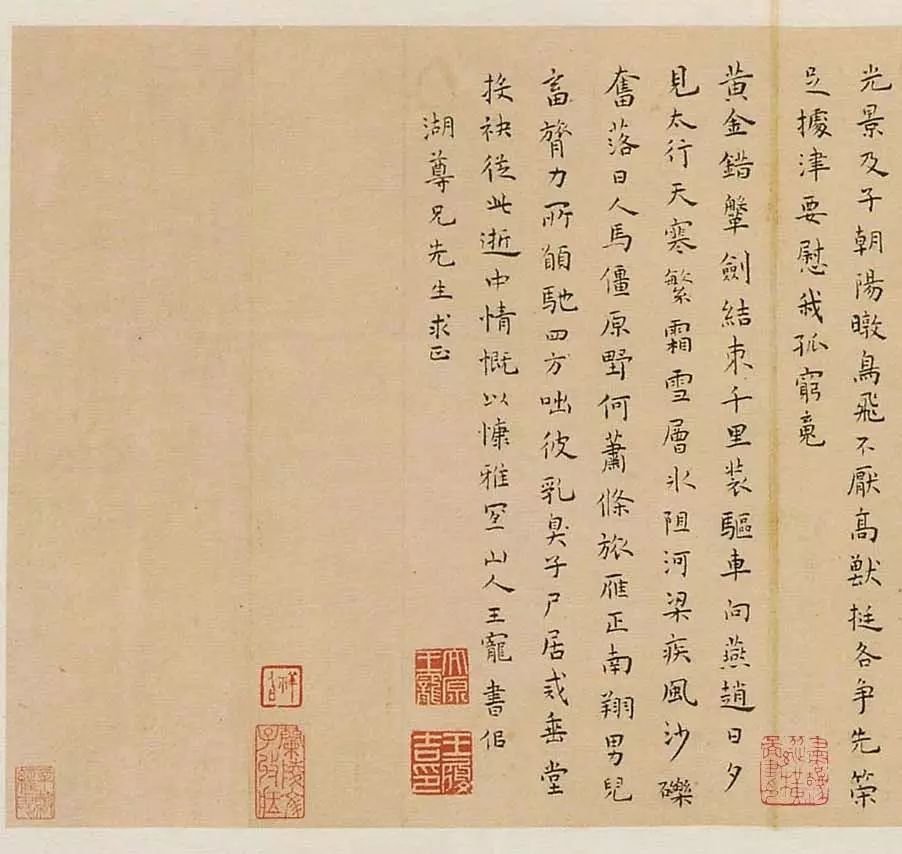 光景及子朝陽暾鳥飛不厭高獸挺各争先榮
足據津要慰我孤窮
黄金錯鞶劍結束千里装驅車向燕趙日夕
見太行天寒繁霜雪層氷阻河梁疾風沙礫
奮落日人馬僵原野何蕭條旅雁正南翔男兒
畜膂力所願馳四方咄彼乳臭子尸居或垂堂
接袂從此逝中情慨以慷雅宜山人王寵書佀
湖尊兄先生求正
王履
吉印